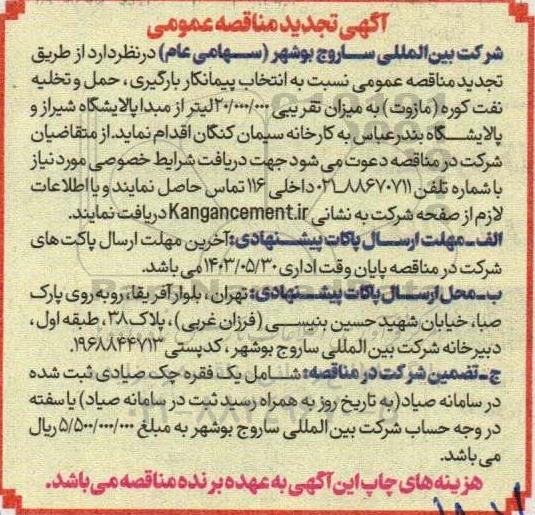 آگهی تجدید مناقصه عمومی
شرکت بین المللی ساروج بوشهر (سهامی عام) در نظر دارد از طریق
تجدید مناقصه عمومی نسبت به انتخاب پیمانکار بارگیری، حمل و تخلیه
نفت کوره (مازوت) به میزان تقریبی ۲۰/۰۰۰/۰۰۰ لیتر از مبدا پالایشگاه شیراز و
پالایشگاه بندرعباس به کارخانه سیمان کنگان اقدام نماید. از متقاضیان
شرکت در مناقصه دعوت می شود جهت دریافت شرایط خصوصی مورد نیاز
با شماره تلفن ۸۸۶۷۰۷۱۱_۰۲۱ داخلی ۱۱۶ تماس حاصل نمایند و یا اطلاعات
لازم از صفحه شرکت به نشانی Kangancement.ir دریافت نمایند.
الف_مهلت ارسال پاکات پیشنهادی: آخرین مهلت ارسال پاکت های
شرکت در مناقصه پایان وقت اداری ۱۴۰۳/۰۵/۳۰ می باشد.
ب_محل ارسال پاکات پیشنهادی: تهران، بلوار آفریقا، روبه روی پارک
صبا، خیابان شهید حسین بنیسی (فرزان غربی)، پلاک ۳۸، طبقه اول،
دبیرخانه شرکت بین المللی ساروج بوشهر، کدپستی ۱۹۶۸۸۴۴۷۱۳.
ج_تضمین شرکت در مناقصه: شامل یک فقره چک صیادی ثبت شده
در سامانه صیاد (به تاریخ روز به همراه رسید ثبت در سامانه صیاد) یا سفته
در وجه حساب شرکت بین المللی ساروج بوشهر به مبلغ ۵/۵۰۰/۰۰۰/۰۰۰ ریال
می باشد.
هزینه های چاپ این آگهی به عهده برنده مناقصه می باشد.